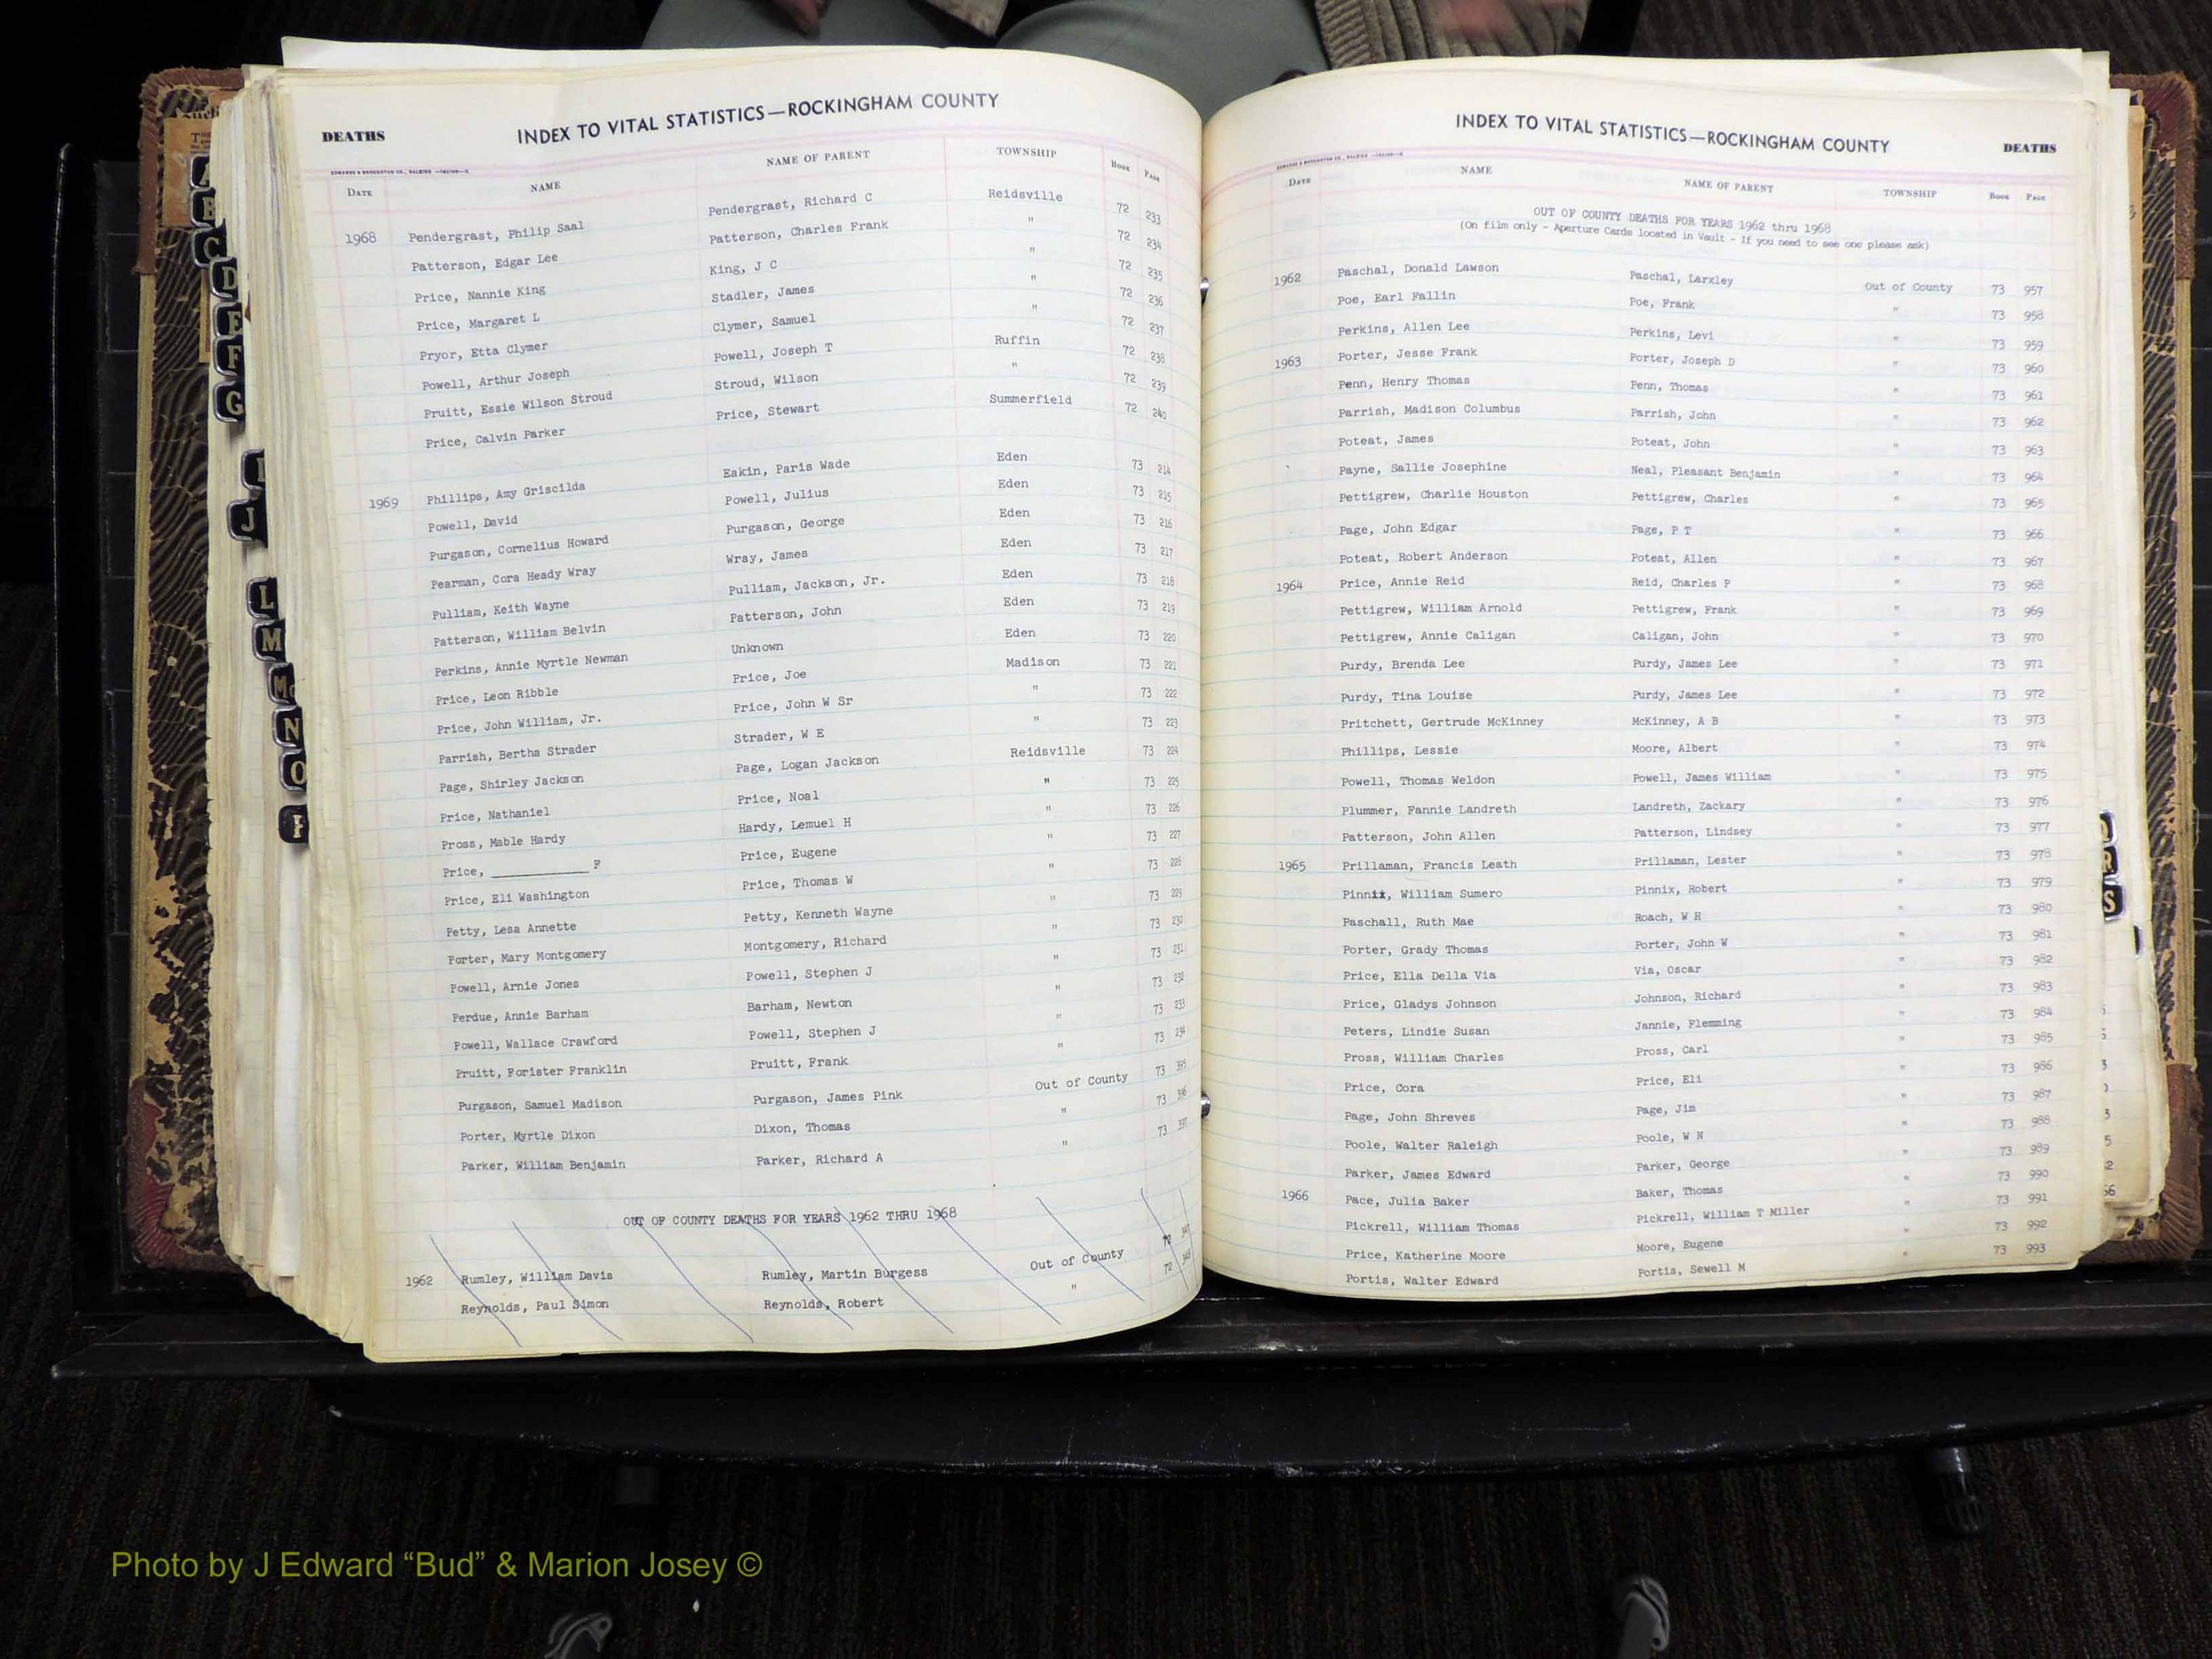 DEATHS INDEX TO VITAL STATISTICS—ROCKINGHAM COUNTY
EDWARDS & BROUGHTON CO., RALEIGH
DATE NAME NAME OF PARENT TOWNSHIP Book Page
1968 Pendergrast, Philip Saal Pendergrast, Richard C Reidsville 72 233
Patterson, Edgar Lee Patterson, Charles Frank " 72 234
Price, Nannie King King, J C " 72 235
Price, Margaret L Stadler, James " 72 236
Pryor, Etta Clymer Clymer, Samuel " 72 237
Powell, Arthur Joseph Powell, Joseph T Ruffin 72 238
Pruitt, Essie Wilson Stroud Stroud, Wilson " 72 239
Price, Calvin Parker Price, Stewart Summerfield 72 240
1969 Phillips, Amy Griscilda Eakin, Paris Wade Eden 73 214
Powell, David Powell, Julius Eden 73 215
Purgason, Cornelius Howard Purgason, George Eden 73 216
Pearman, Cora Heady Wray Wray, James Eden 73 217
Pulliam, Keith Wayne Pulliam, Jackson, Jr. Eden 73 218
Patterson, William Belvin Patterson, John Eden 73 219
Perkins, Annie Myrtle Newman Unknown Eden 73 220
Price, Leon Ribble Price, Joe Madison 73 221
Price, John William, Jr. Price, John W Sr " 73 222
Parrish, Bertha Strader Strader, W E " 73 223
Page, Shirley Jackson Page, Logan Jackson Reidsville 73 224
Price, Nathaniel Price, Noal " 73 225
Pross, Mable Hardy Hardy, Lemuel H " 73 226
Price, ____________ F Price, Eugene " 73 227
Price, Eli Washington Price, Thomas W " 73 228
Petty, Lesa Annette Petty, Kenneth Wayne " 73 229
Porter, Mary Montgomery Montgomery, Richard " 73 230
Powell, Arnie Jones Powell, Stephen J " 73 231
Perdue, Annie Barham Barham, Newton " 73 232
Powell, Wallace Crawford Powell, Stephen J " 73 233
Pruitt, Forister Franklin Pruitt, Frank " 73 234
Purgason, Samuel Madison Purgason, James Pink Out of County 73 395
Porter, Myrtle Dixon Dixon, Thomas " 73 396
Parker, William Benjamin Parker, Richard A " 73 397
OUT OF COUNTY DEATHS FOR YEARS 1962 THRU 1968
1962 Rumley, William Davis Rumley, Martin Burgess Out of County 72
Reynolds, Paul Simon Reynolds, Robert " 72
INDEX TO VITAL STATISTICS—ROCKINGHAM COUNTY DEATHS
EDWARDS & BROUGHTON CO., RALEIGH
DATE NAME NAME OF PARENT TOWNSHIP Book Page
OUT OF COUNTY DEATHS FOR YEARS 1962 thru 1968
(On film only - Aperture Cards located in Vault - If you need to see one please ask)
1962 Paschal, Donald Lawson Paschal, Larxley Out of County 73 957
Poe, Earl Fallin Poe, Frank " 73 958
Perkins, Allen Lee Perkins, Levi " 73 959
1963 Porter, Jesse Frank Porter, Joseph D " 73 960
Penn, Henry Thomas Penn, Thomas " 73 961
Parrish, Madison Columbus Parrish, John " 73 962
Poteat, James Poteat, John " 73 963
Payne, Sallie Josephine Neal, Pleasant Benjamin " 73 964
Pettigrew, Charlie Houston Pettigrew, Charles " 73 965
Page, John Edgar Page, P T " 73 966
Poteat, Robert Anderson Poteat, Allen " 73 967
1964 Price, Annie Reid Reid, Charles P " 73 968
Pettigrew, William Arnold Pettigrew, Frank " 73 969
Pettigrew, Annie Caligan Caligan, John " 73 970
Purdy, Brenda Lee Purdy, James Lee " 73 971
Purdy, Tina Louise Purdy, James Lee " 73 972
Pritchett, Gertrude McKinney McKinney, A B " 73 973
Phillips, Lessie Moore, Albert " 73 974
Powell, Thomas Weldon Powell, James William " 73 975
Plummer, Fannie Landreth Landreth, Zackary " 73 976
Patterson, John Allen Patterson, Lindsey " 73 977
1965 Prillaman, Francis Leath Prillaman, Lester " 73 978
Pinnix, William Sumero Pinnix, Robert " 73 979
Paschall, Ruth Mae Roach, W H " 73 980
Porter, Grady Thomas Porter, John W " 73 981
Price, Ella Della Via Via, Oscar " 73 982
Price, Gladys Johnson Johnson, Richard " 73 983
Peters, Lindie Susan Jannie, Flemming " 73 984
Pross, William Charles Pross, Carl " 73 985
Price, Cora Price, Eli " 73 986
Page, John Shreves Page, Jim " 73 987
Poole, Walter Raleigh Poole, W N " 73 988
Parker, James Edward Parker, George " 73 989
1966 Pace, Julia Baker Baker, Thomas " 73 990
Pickrell, William Thomas Pickrell, William T Miller " 73 991
Price, Katherine Moore Moore, Eugene " 73 992
Portis, Walter Edward Portis, Sewell M " 73 993
A
B
C
D
E
F
G
I
J
L
M
Mc
N
O
R
S
Photo by J Edward “Bud” & Marion Josey ©